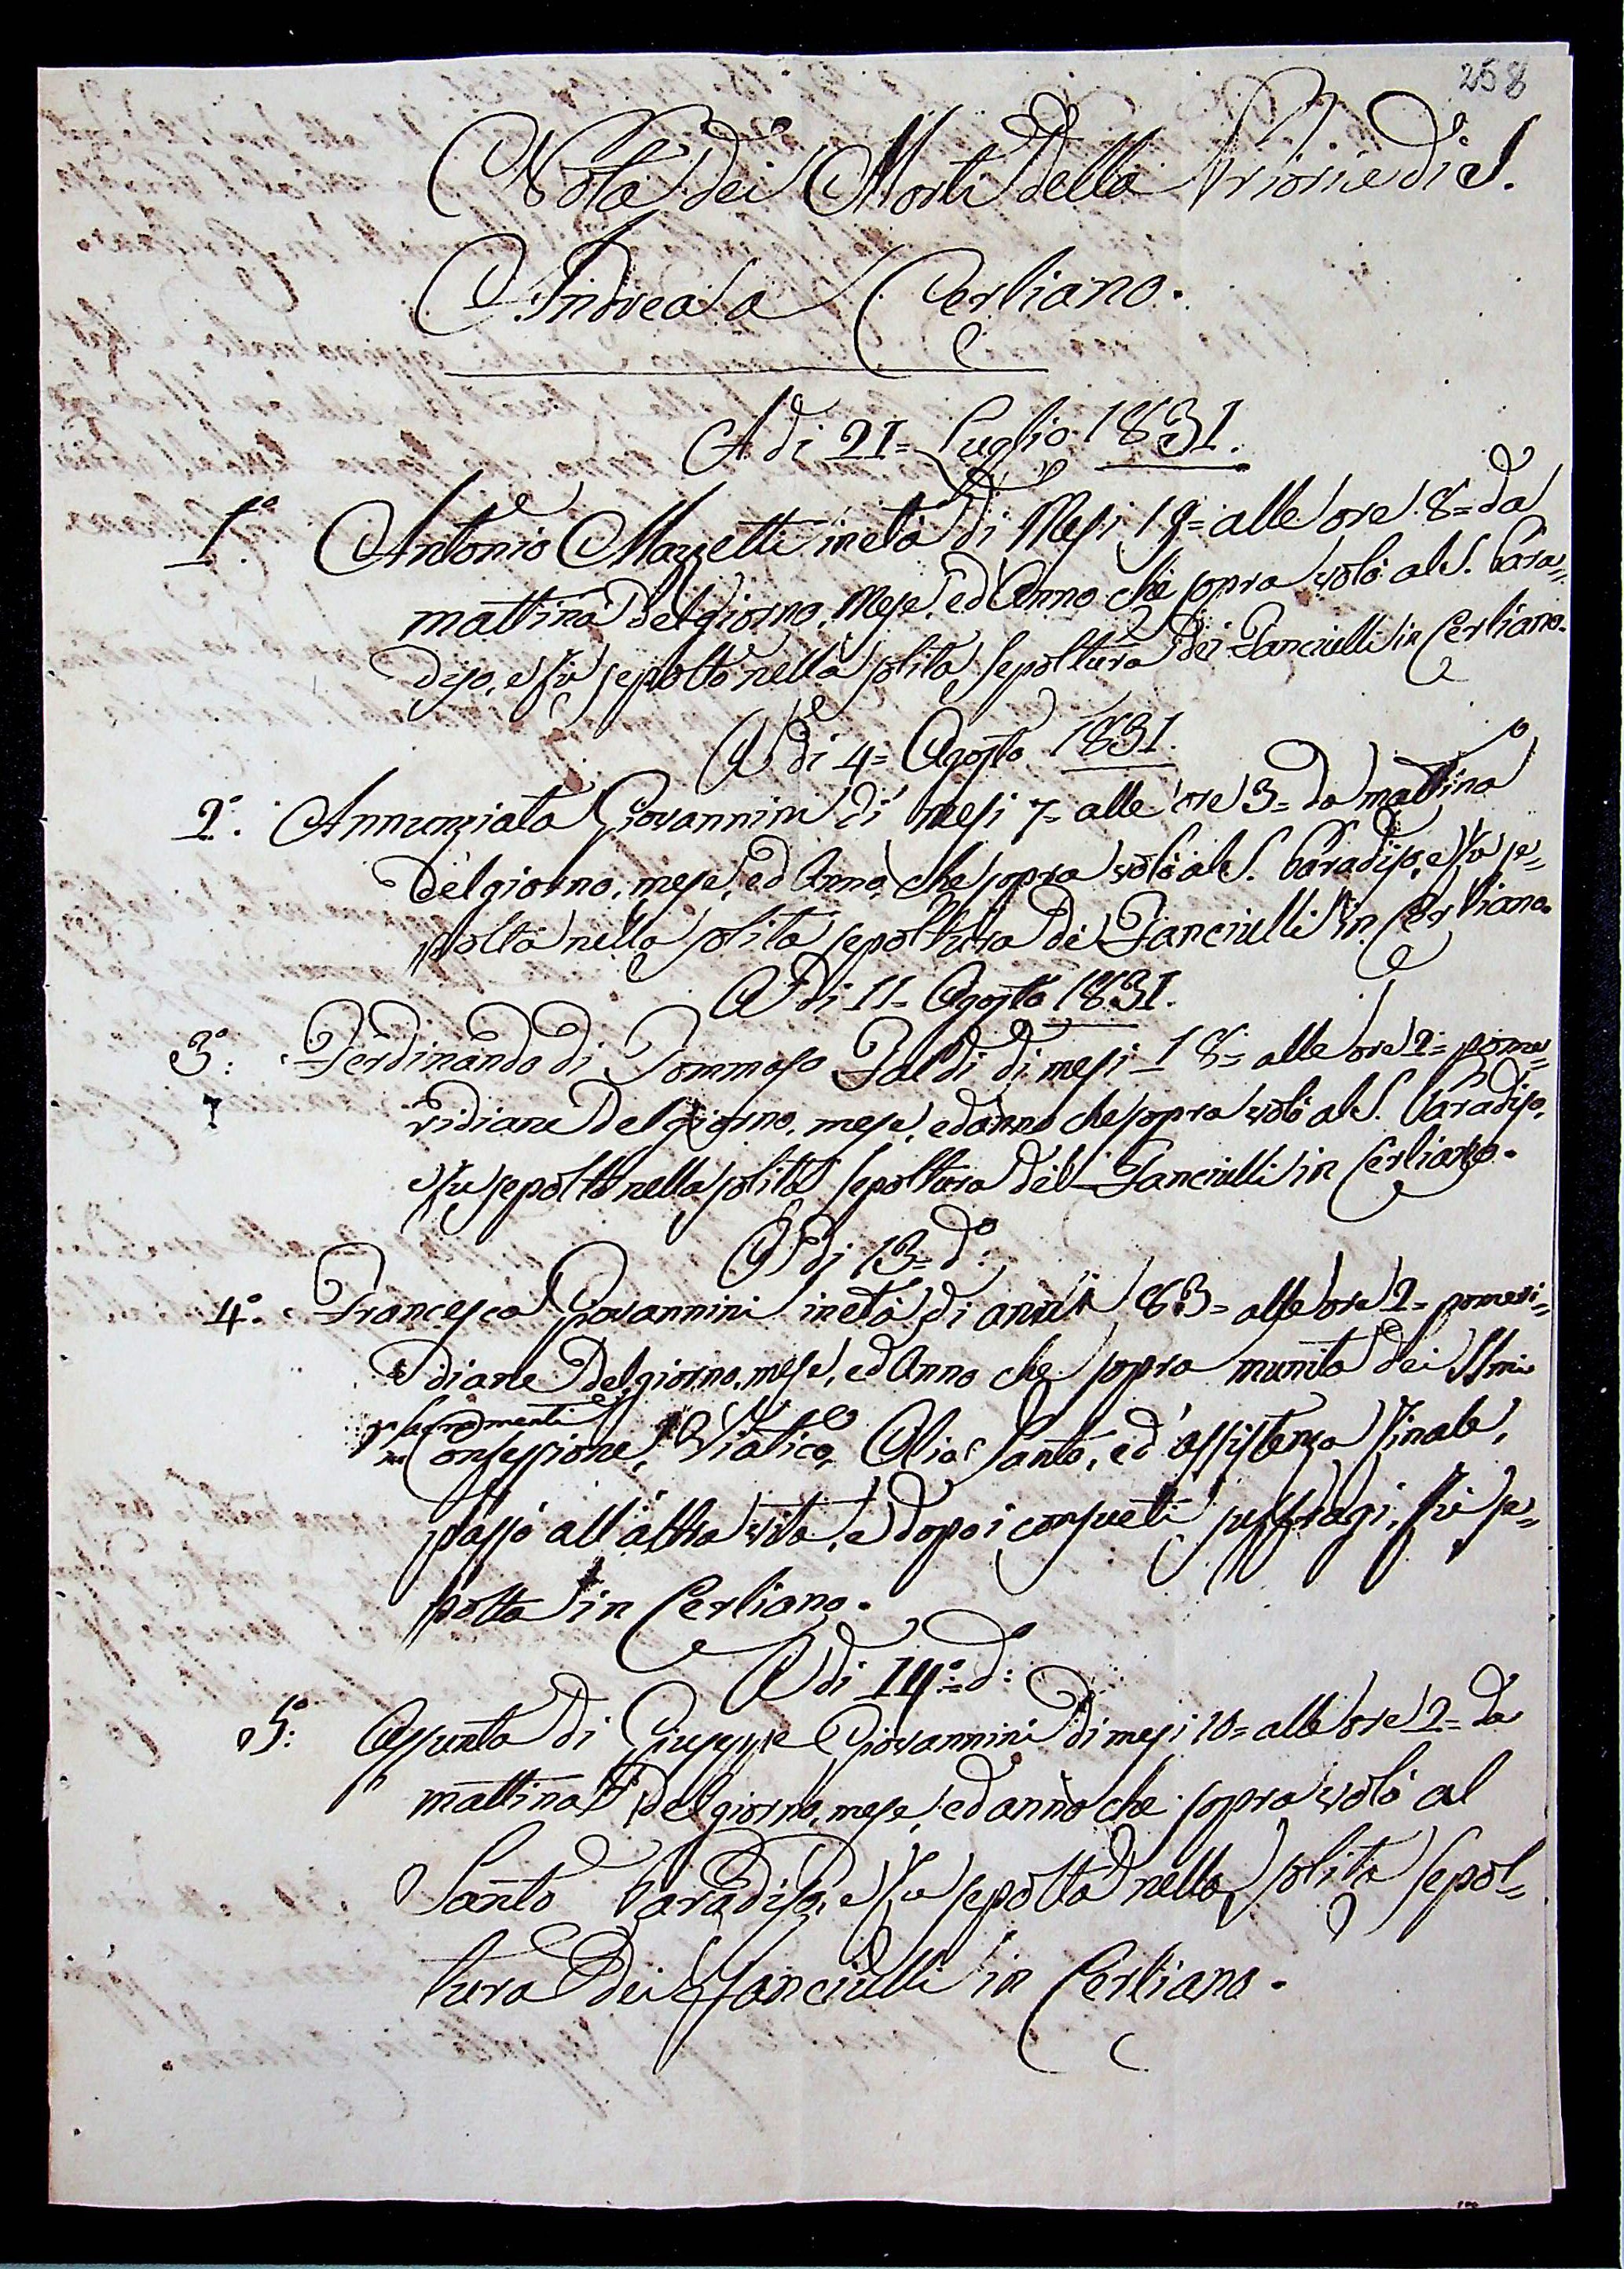 258
Nota dei Morti della Prioria di S.
Andrea a Cerliano.
A di 21= Luglio 1831.
1.° Antonio Mazzetti in età di Mesi 19= alle ore 8= da
mattina del giorno, Mese, ed Anno che sopra volò al S. Para=
diso, e fù sepolto nella solita sepoltura dei Fanciulli in Cerliano.
A di 4= Agosto 1831.
2.° Annunziata Giovannini di mesi 7= alle ore 3= da mattina
del giorno, mese, ed Anno che sopra volò al S. Paradiso, e fu se=
polta nella solita sepoltura de Fanciulli in Cerliano.
A di 11= Agosto 1831.
3.° Ferdinando di Tommaso Faldi di mesi 18= alle ore 2= pome=
ridiane del giorno, mese, ed anno che sopra volò al S. Paradiso,
e fu sepolto nella solita sepoltura dei Fanciulli in Cerliano.
A di 13= d.°
4.° Francesca Giovannini in età di anni 63= alle ore 2= pomeri=
diane del giorno, mese, ed Anno che sopra munita dei SSmi
sacramenti
Confessione, Viatico, Olio Santo, ed assistenza finale,
passò all'altra vita, e dopo i consueti suffragi, fù se=
polta in Cerliano.
A di 14.°= d.°
5.° Assunta di Giuseppe Giovannini di mesi 10= alle ore 2= da
mattina del giorno, mese, ed anno che sopra volò al
Santo Paradiso, e fu sepolta nella solita sepol=
tura dei fanciulli in Cerliano.